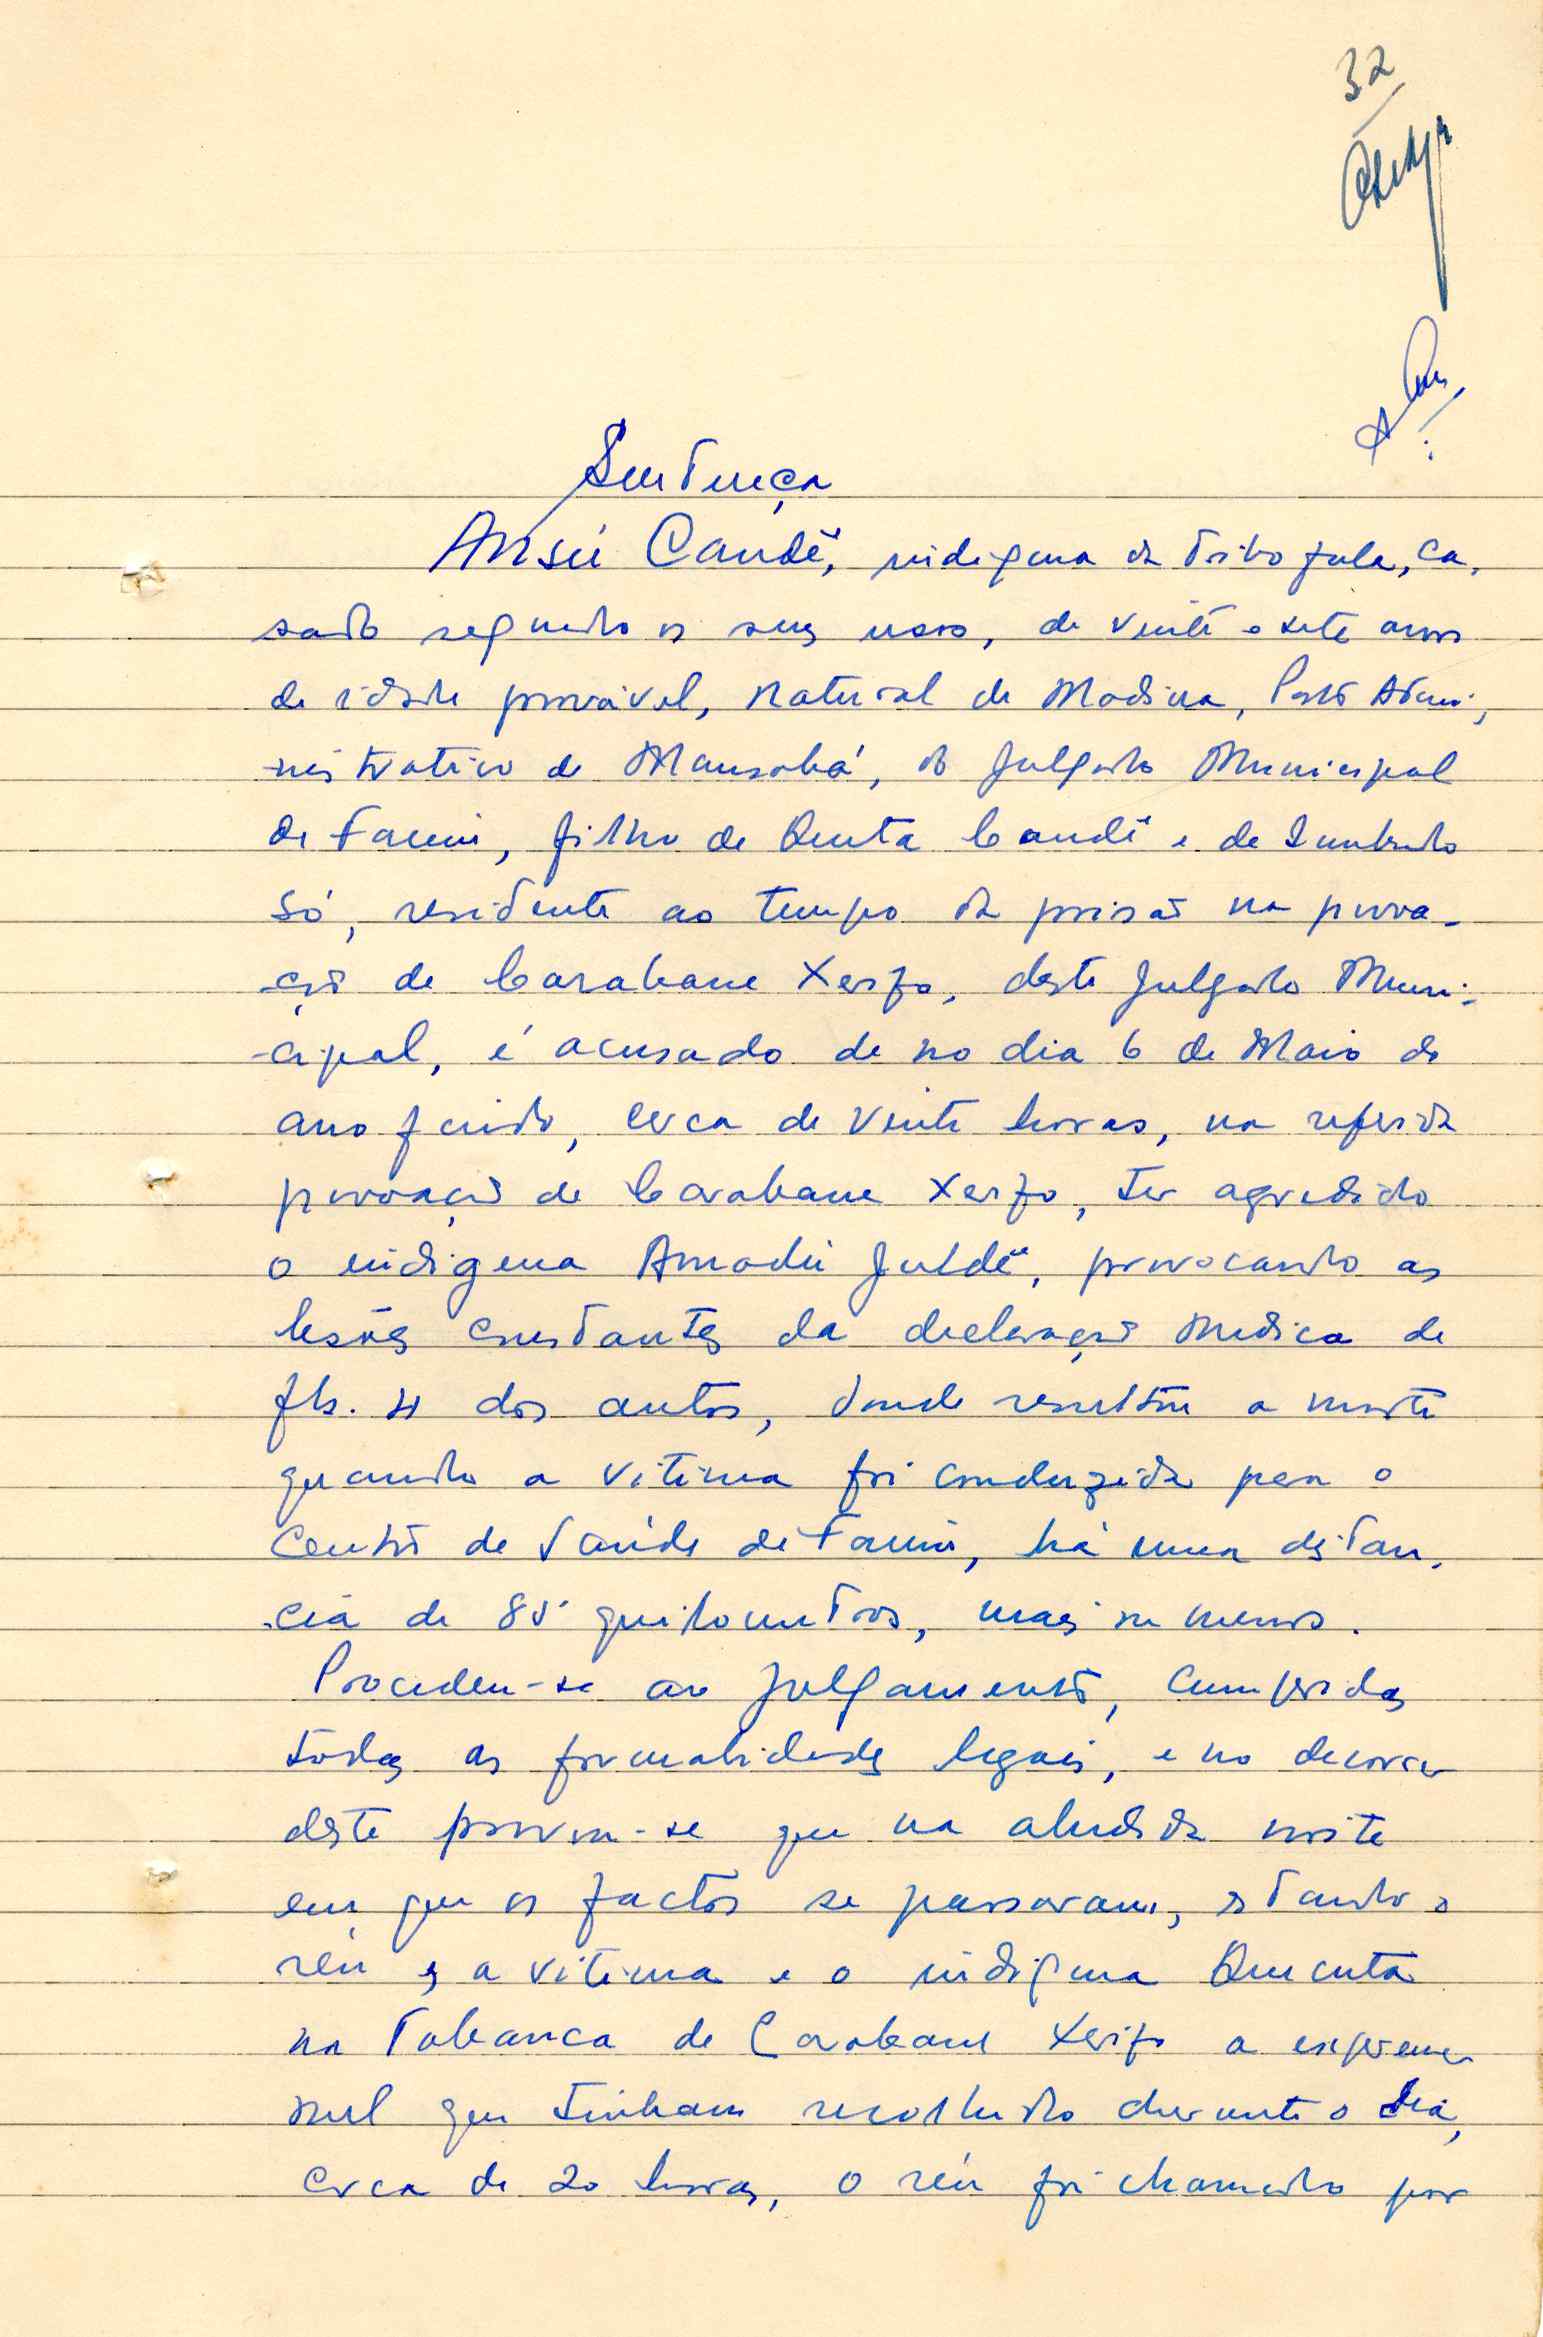 32
Sentença
Ansú Candê, indigena da tribo fula, ca-
sado segundo os seus usos, de vinte e sete anos
de idade provável, natural de Madina, Posto Admi-
-nistrativo de Mansabá, do Julgado Municipal
de Farim, filho de Quta Candê e de
Só, residente ao tempo da prisão na povoa-
-ção de Carabane Xerifo, deste Julgado Muni-
-cipal, é acusado de no dia 6 de Maio do
ano findo, cerca de vinte horas, na referida
povoação de Carabane Xerifo, ter agredido
o indigena Amadú Juldê, provocando as
lesões constantes da declaração médica de
fls. 4 dos autos, donde resultou a morte
quando a vitima foi conduzida para o
Centro de Saúde de Farim, há uma distan-
-cia de 85 quilometros, mais ou menos.
Procedeu-se ao julgamento, cumpridas
todas as formalidades legais, e no decorrer
deste provou-se que na aludida noite
em que os factos se passaram, estando o
réu e a vitima e o indigena
na Tabanca de Carabane Xerifo a espremer
mel que tinham recolhido durante o dia,
cerca de 20 horas, o réu foi chamado por